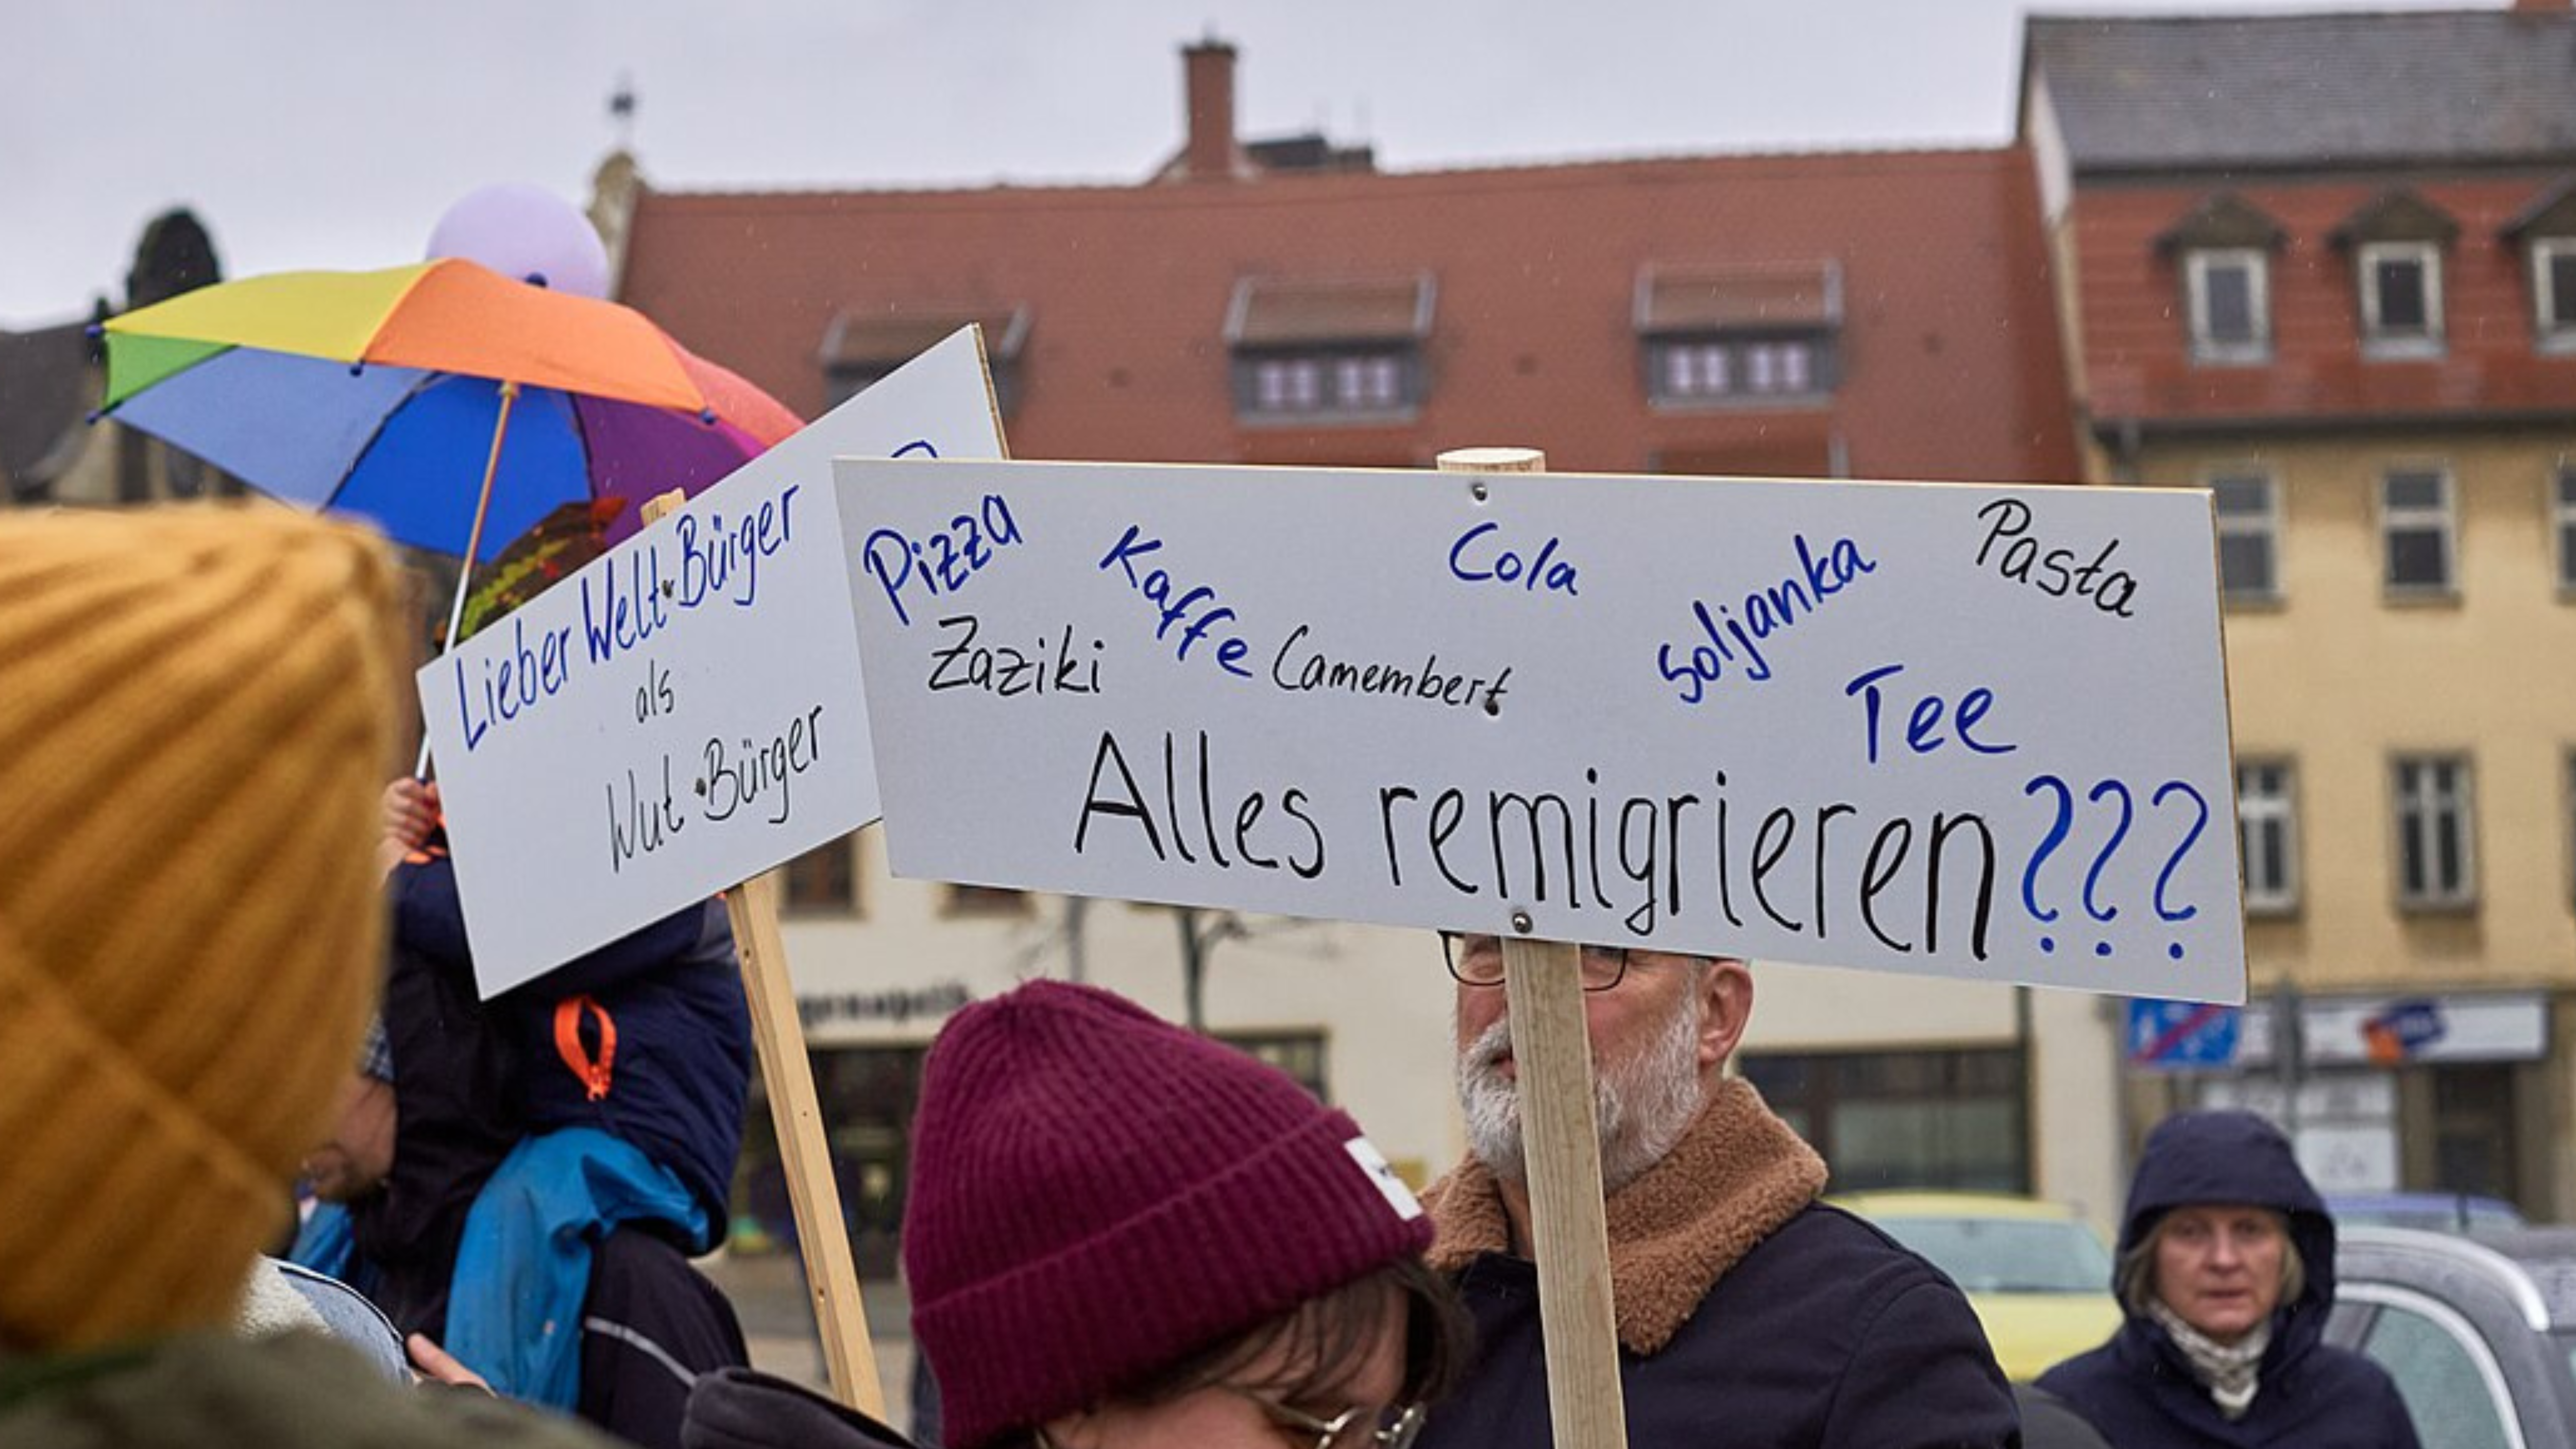 Lieber Welt-Bürger
als
Wut-Bürger
Pizza
Kaffe
Cola
Soljanka
Pasta
Zaziki
Camembert
Tee
Alles remigrieren???